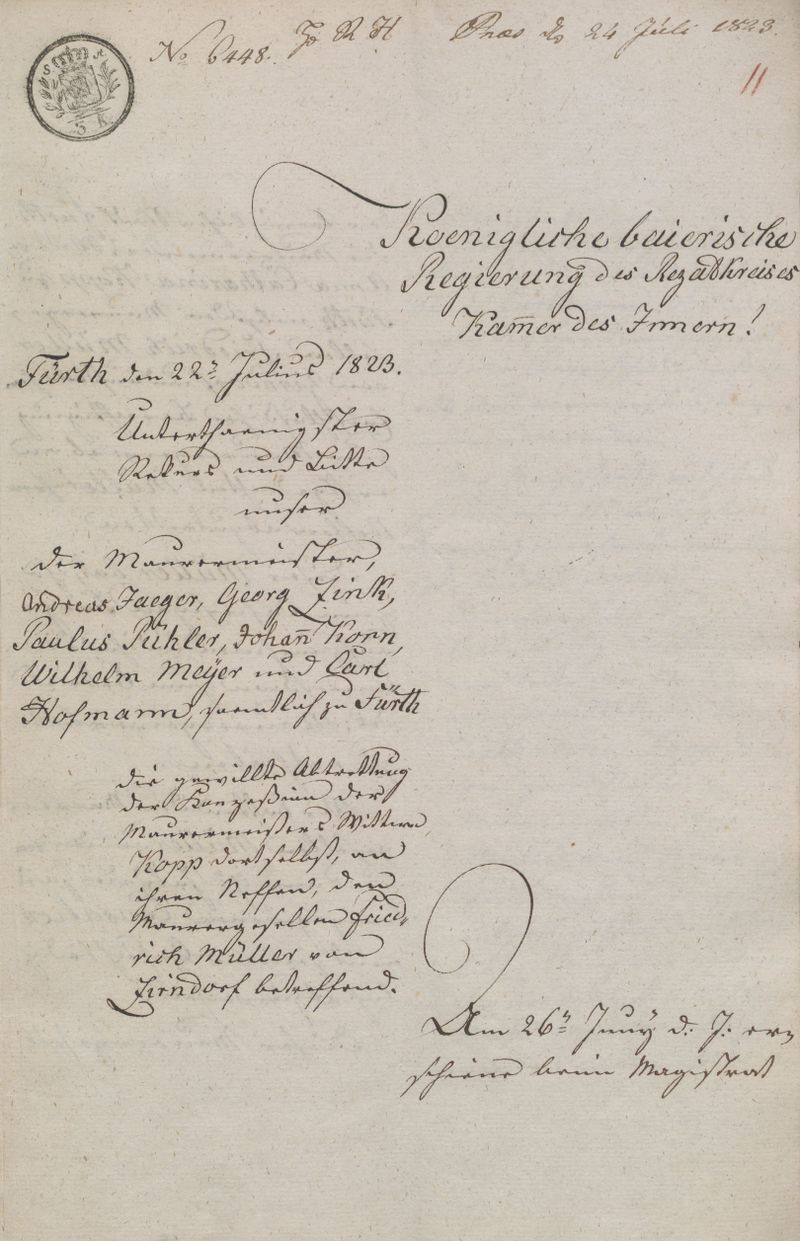 No 6448.
R H
Praes d 24 Juli 1823.
11
3 K
Koenigliche baierische
Regierung des Rezatkreises
Kam̅er des Innern!
Fürth den 22ⁿ Julius 1823.
Unterthaenigster
Rekurs und Bitte
unser
der Maurermeister,
Andreas Jaeger, Georg Zink,
Paulus Pühler, Johan̅ Korn,
Wilhelm Meÿer und Carl
Hofmann, saemtlich zu Fürth
die gewillte Abtrettung
der Konzeßion der
Maurermeisters Wittwe,
Kopp dortselbst, an
ihren Neffen, den
Maurergesellen Fried-
rich Müller von
Zirndorf betreffend.
Am 26ⁿ Junÿ d. J. er-
schiene beim Magistrat